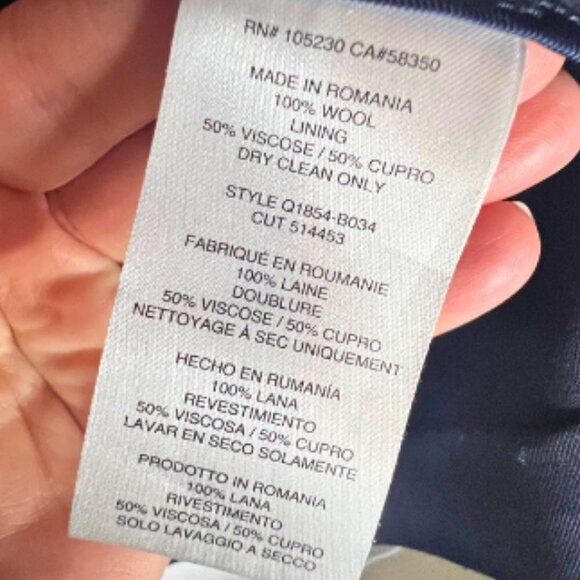 RN# 105230 CA#58350
MADE IN ROMANIA
100% WOOL
LINING
50% VISCOSE / 50% CUPRO
DRY CLEAN ONLY
STYLE Q1854-B034
CUT 514453
FABRIQUÉ EN ROUMANIE
100% LAINE
DOUBLURE
50% VISCOSE / 50% CUPRO
NETTOYAGE À SEC UNIQUEMENT
HECHO EN RUMANÍA
100% LANA
REVESTIMIENTO
50% VISCOSA / 50% CUPRO
LAVAR EN SECO SOLAMENTE
PRODOTTO IN ROMANIA
100% LANA
RIVESTIMENTO
50% VISCOSA / 50% CUPRO
SOLO LAVAGGIO A SECCO